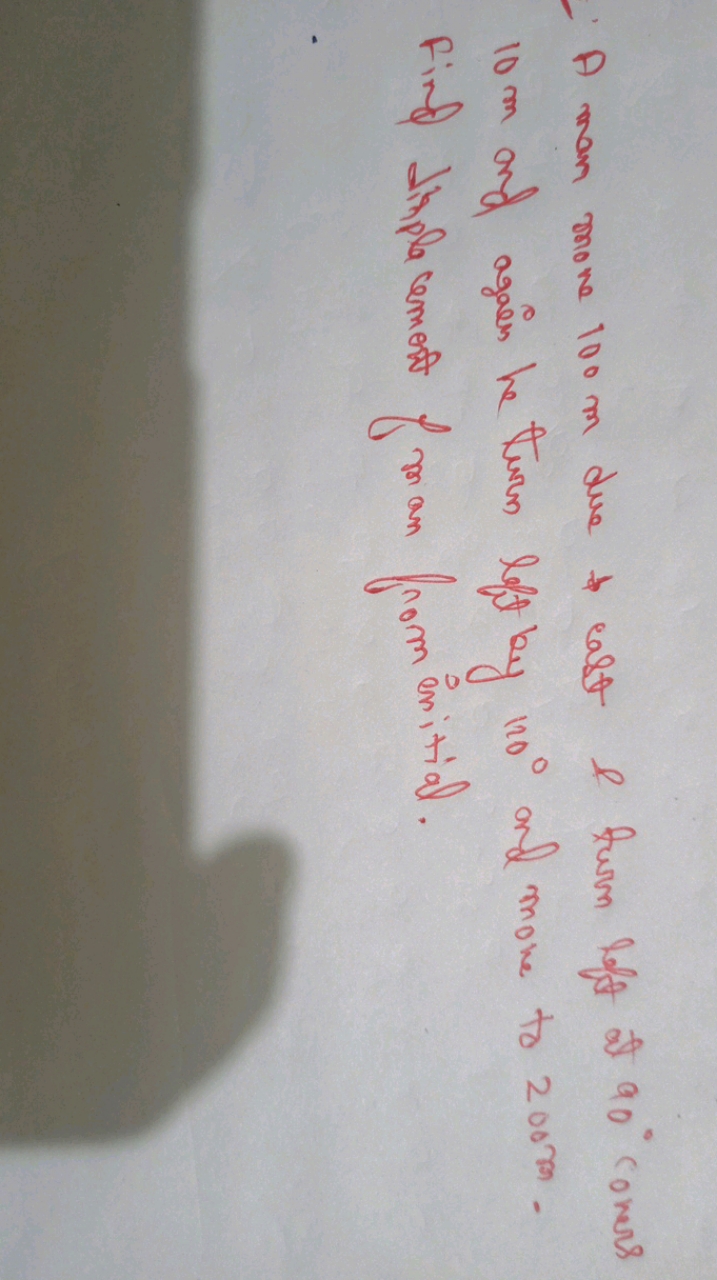 A man move 100 m due + east & turn left at 90° covers
10 m and again he turn left by 120° and move to 200m.
Find displacement of man from initial.